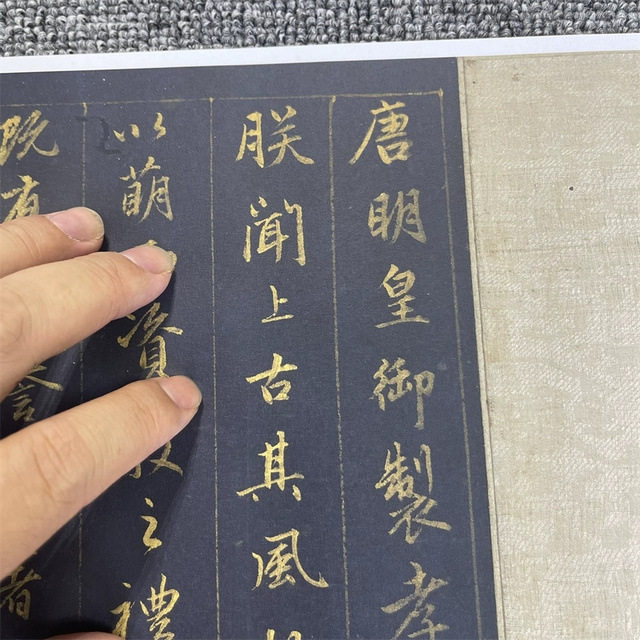 唐明皇御製孝
朕聞上古其風
以萌資之禮
既有者